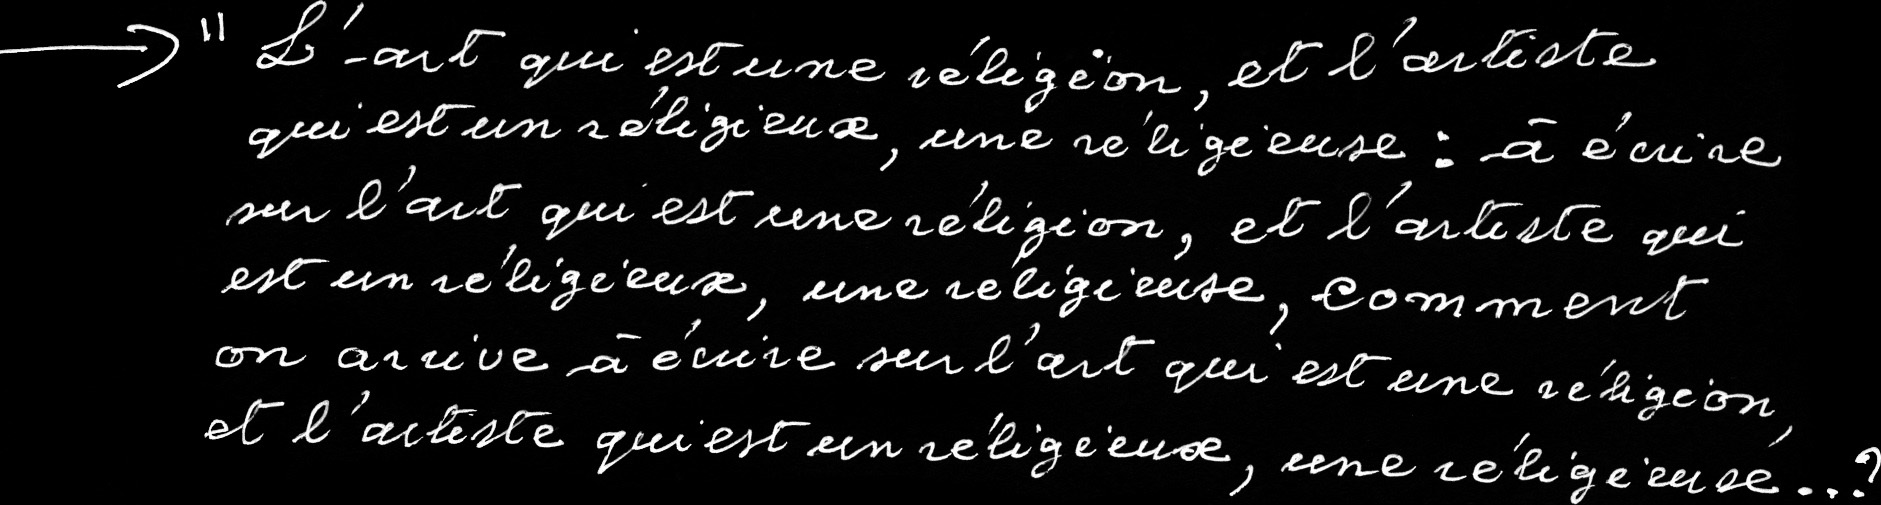 → " L'art qui est une réligion, et l'artiste
qui est un réligieux, une réligieuse : à écrire
sur l'art qui est une réligion, et l'artiste qui
est un réligieux, une réligieuse, comment
on arrive à écrire sur l'art qui est une réligion,
et l'artiste qui est un réligieux, une réligieuse...?